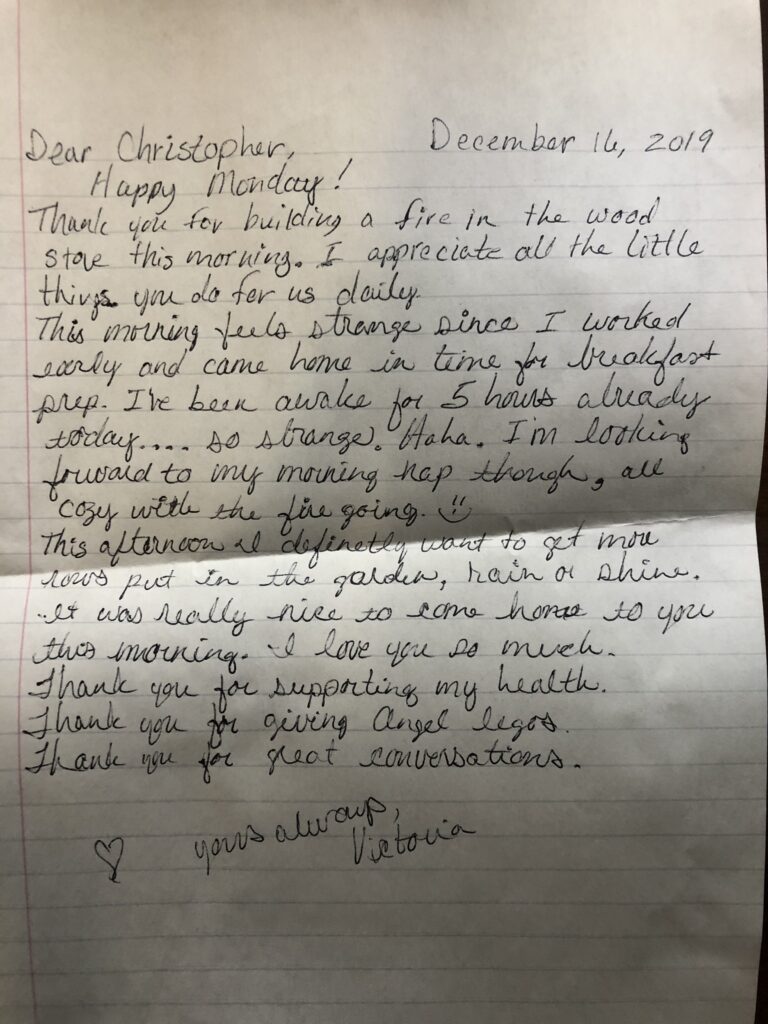 Dear Christopher, December 16, 2019
Happy Monday!
Thank you for building a fire in the wood
stove this morning. I appreciate all the little
things you do for us daily.
This morning feels strange since I worked
early and came home in time for breakfast
prep. I've been awake for 5 hours already
today.... so strange. Haha. I'm looking
forward to my morning nap though, all
cozy with the fire going. :)
This afternoon I definetly want to get more
rows put in the garden, rain or shine.
It was really nice to come home to you
this morning. I love you so much.
Thank you for supporting my health.
Thank you for giving Angel legos.
Thank you for great conversations.
♡ yours always,
Victoria